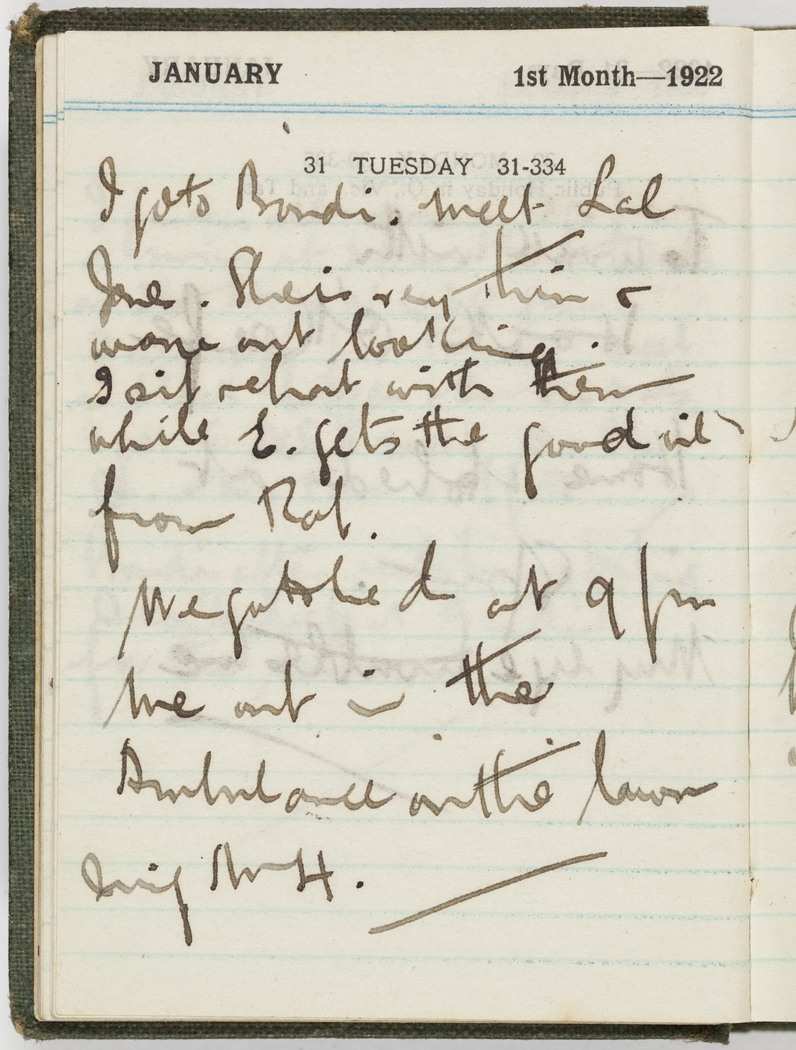 JANUARY 1st Month—1922
31 TUESDAY 31-334
I go to Bondi. meet Lal
Jone. She is very thin &
worn out looking.
I sit & chat with them
while E. gets the good oil
from Rob.
We go to bed at 9 pm
me out in the
Ambulance on the lawn